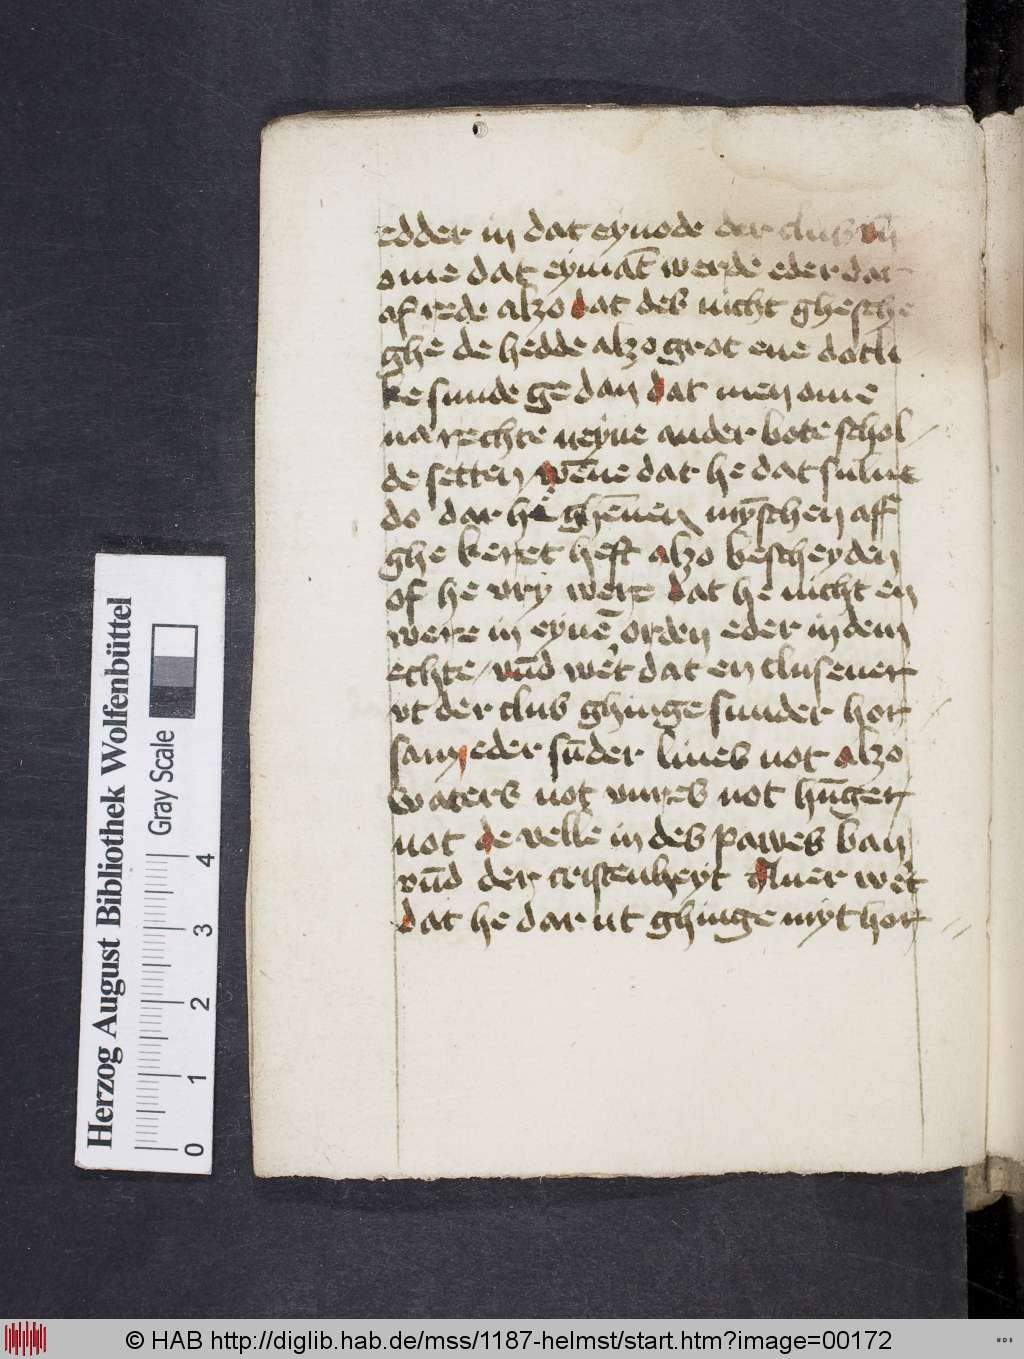 edder in dat eynode der clus vn̄
ome dat eyman̄t werde eder dat
af rede alzo dat des nicht ghesche
ghe de hedde alzo grot ene dotli
ke sunde ge dan dat men ome
na rechte neyne ander bote schol
de setten / wēne dat he dat sulue
do dar he ghēnen mȳschen aff
ghe keret heft alzo bescheyden
of he vry were dat he nicht en
were in eynē orden eder in dem
echte / vn̄d wer̄t dat en clusener
vt der clus ghinge sunder hor
sam eder sūder liues not alzo
waters not vures not hūger
not de velle in des pawes ban
vn̄d der cristenheyt Auer wer̄t
dat he dar ut ghinge myt hor
Herzog August Bibliothek Wolfenbüttel
Gray Scale
0 1 2 3 4
© HAB http://diglib.hab.de/mss/1187-helmst/start.htm?image=00172
WDB